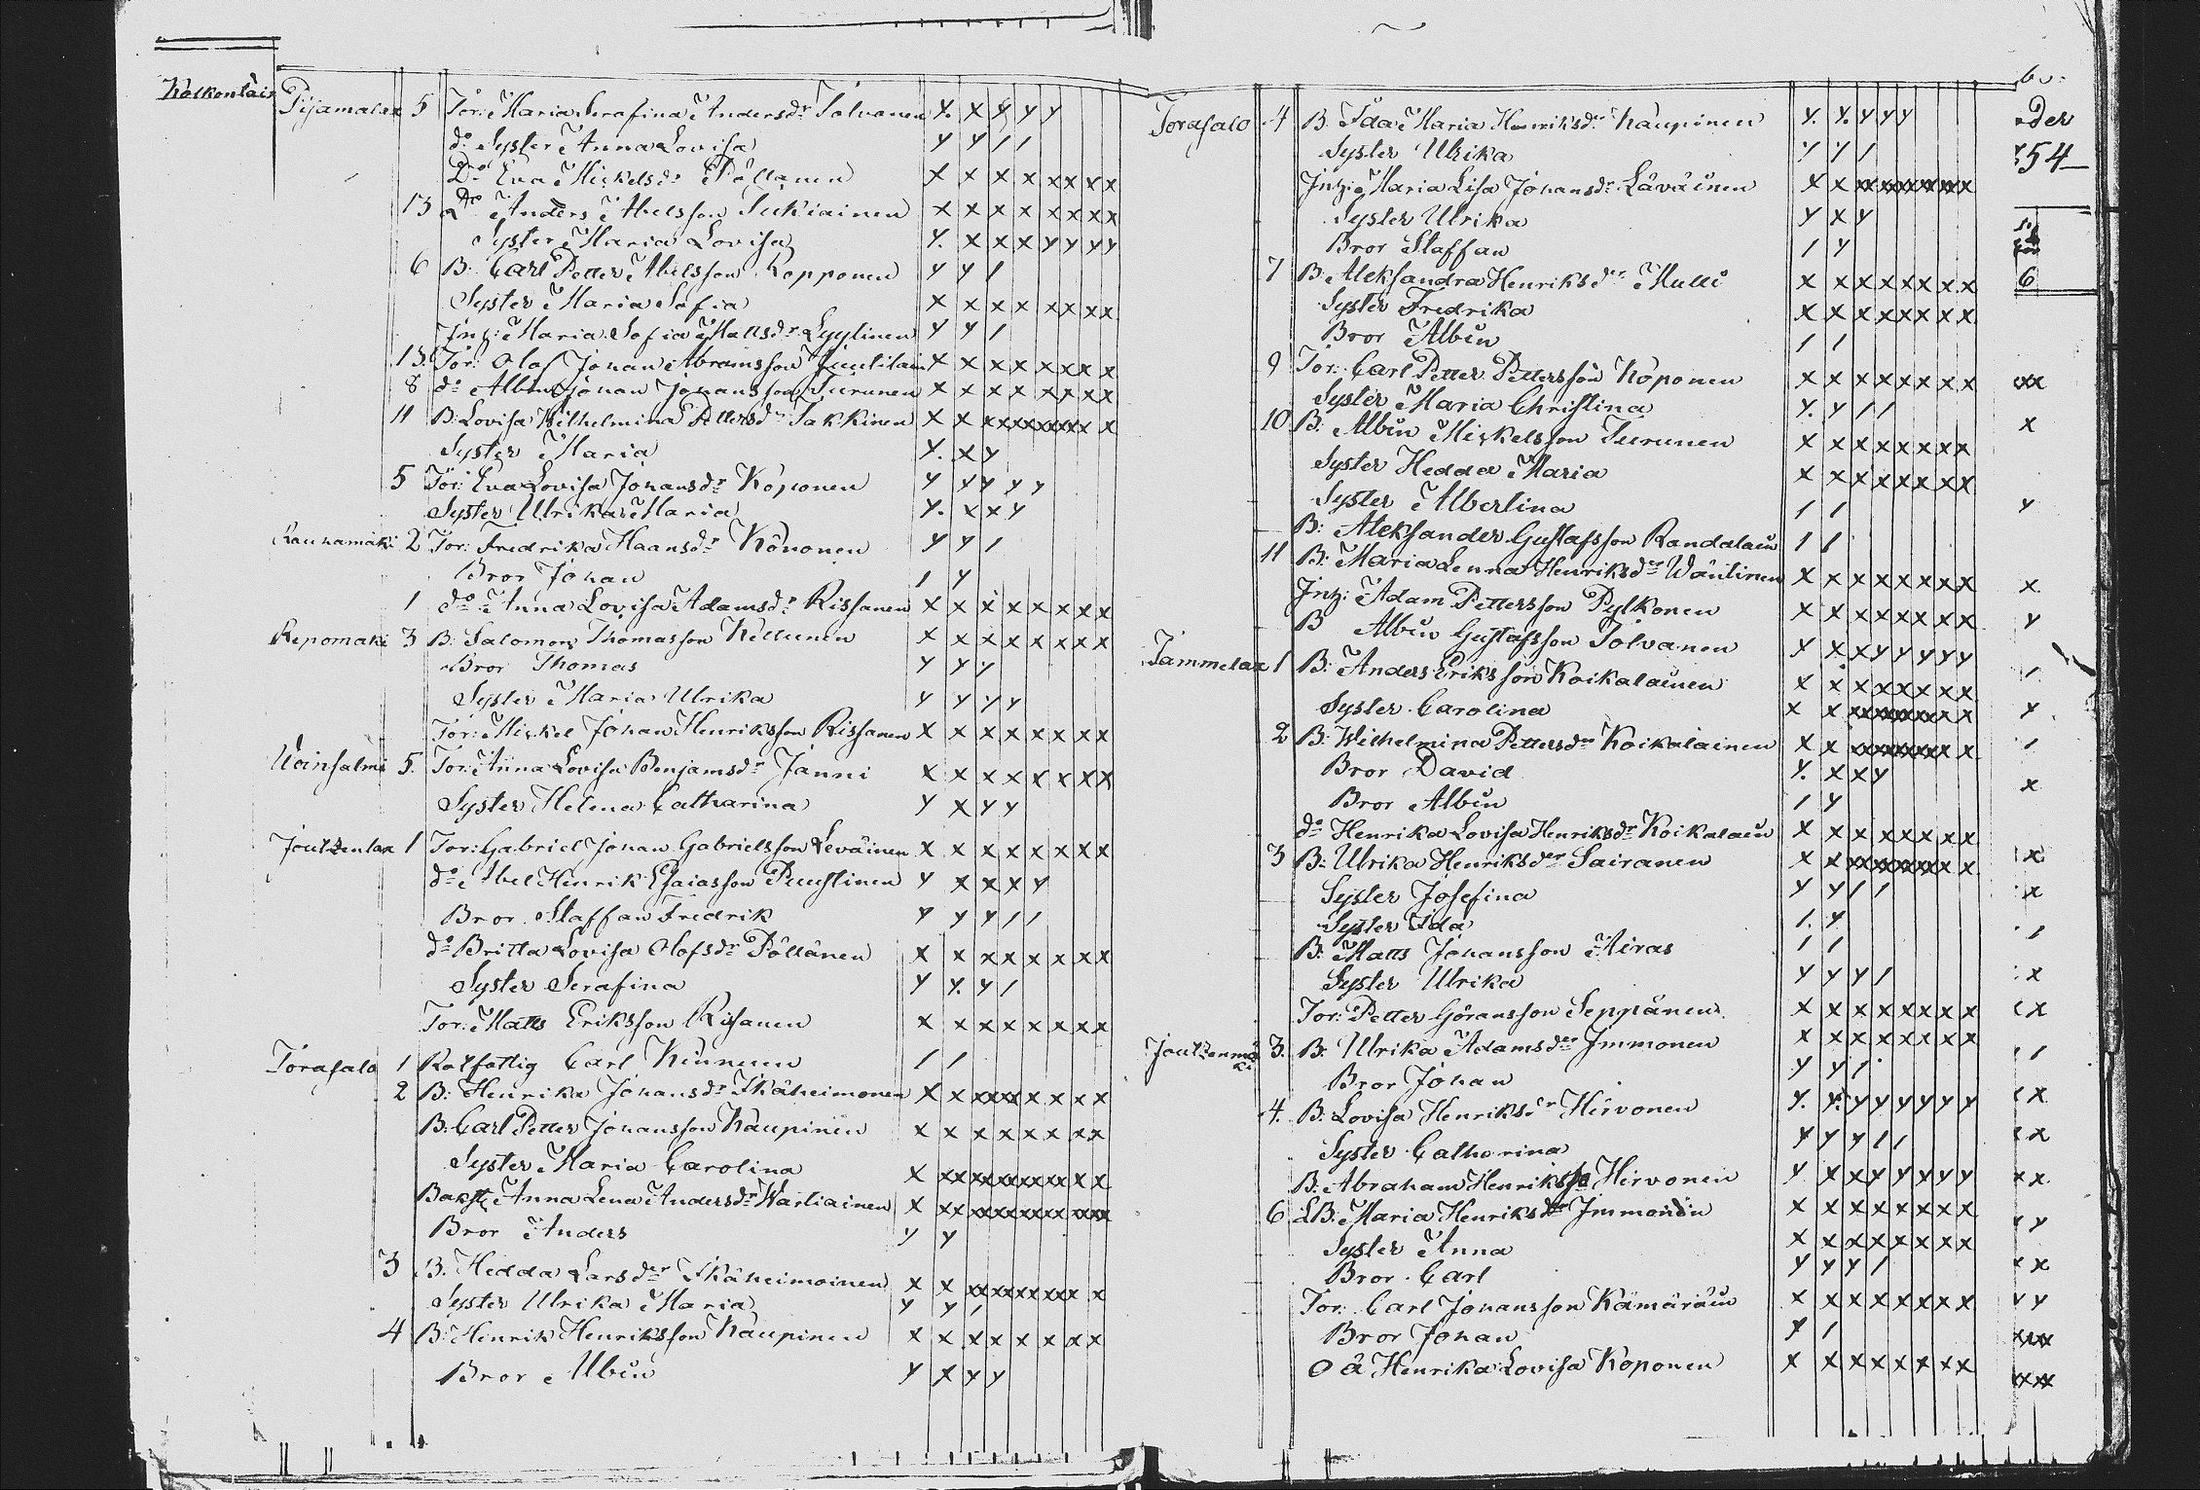 Pijamalax 5 Tor: Maria Serafina Andersdr Tolvanen y. x y y y
do Syster Anna Lovisa y y / /
Do Eva Mickelsdr Pöllänen x x x x x x x x
13 Do Anders Abelsson Sukiainen x x x x x x x x
Syster Maria Lovisa y. x x x y y y y
6 B: Carl Petter Abelsson Kopponen y y /
Syster Maria Sofia x x x x x x x x
Inh: Maria Sofia Mattsdr Lyytinen y y /
13. Tor: Olof Johan Abramsson x x x x x x x x
8 do Albin Johan Johansson Turunen x x x x x x x x
11 B: Lovisa Wilhelmina Pettersdr Sakkinen x x
Syster Maria y. x y
5 Tor: Eva Lovisa Johansdr Koponen y y y y y
Syster Ulrika Maria y. x x y
Rauhamäki 2 Tor: Fredrika Haansdr Könönen y y /
Bror Johan / y
1 do Anna Lovisa Adamsdr Rissanen x x x x x x x x
Repomäki 3 B: Salomon Thomasson Kellunen x x x x x x x x
Bror Thomas y y y
Syster Maria Ulrika y y y y
Tor: Mickel Johan Henriksson Rissanen x x x x x x x x
5. Tor: Anna Lovisa Benjamsdr Janni x x x x x x x x
Syster Helena Catharina y x y y
Joutzenlax 1 Tor: Gabriel Johan Gabrielsson Leväinen x x x x x x x x
do Abel Henrik Esaiasson Puustinen y x x x y
Bror Staffan Fredrik y y y / /
do Britta Lovisa Olofsdr Pöllänen x x x x x x x x
Syster Serafina y y. y /
Tor: Matts Eriksson Rissanen x x x x x x x x
Torasalo 1 Rotfattig Carl Kinnunen / /
2 B: Henrika Johansdr Ikäheimonen x x
B: Carl Petter Johansson Kaupinen x x x x x x x x
Syster Maria Carolina x
Anna Lena Andersdr Wartiainen x
Bror Anders y y
3 B. Hedda Larsder Ikäheimoinen x x
Syster Ulrika Maria y y /
4 B: Henrik Henriksson Kaupinen x x x x x x x x
Bror Albin y x y y
Torasalo 4 B. Ida Maria Henriksdr Kaupinen y. y. y y y
Syster Ulrika y y /
Inh: Maria Lisa Johansdr Läväinen x x
Syster Ulrika y x y
Bror Staffan / y
7 B Aleksandra Henriksdr Mulli x x x x x x x x
Syster Fredrika x x x x x x x x
Bror Albin / /
9 Tor: Carl Petter Pettersson Koponen x x x x x x x x
Syster Maria Christina y. y / /
10 B: Albin Mickelsson Turunen x x x x x x x x
Syster Hedda Maria x x x x x x x x
Syster Albertina / /
B: Aleksander Gustafsson Randalain / /
11 B: Maria Lenna Henriksdr Wäntinen x x x x x x x x
Inh: Adam Pettersson Pylkonen x x x x x x x x
B Albin Gustafsson Tolvanen y x x y y y y y
Tammelax 1 B: Anders Eriksson Koikalainen x x x x x x x x
Syster Carolina x x
2 B: Wilhelmina Pettersdr Koikalainen x x
Bror David y. x x y
Bror Albin / y
do Henrika Lovisa Henriksdr Koikalain x x x x x x x x
3 B: Ulrika Henriksder Sairanen x x
Syster Josefina y y / /
Syster Ida /. y
B: Matts Johansson Airas / /
Syster Ulrika y y y /
Tor: Petter Göransson Seppänen x x x x x x x x
Joutzenmäki 3. B. Ulrika Adamsder Immonen x x x x x x x x
Bror Johan y y /
4. B: Lovisa Henriksdr Hirvonen y. y. y y y y y y
Syster Catharina y y y / /
B: Abraham Henrikss Hirvonen y x x y y y y y
6 B: Maria Henriksdr Immonen x x x x x x x x
Syster Anna x x x x x x x x
Bror Carl y y y /
Tor: Carl Johansson Kämäräin x x x x x x x x
Bror Johan y /
O ä Henrika Lovisa Koponen x x x x x x x x
der
54
6